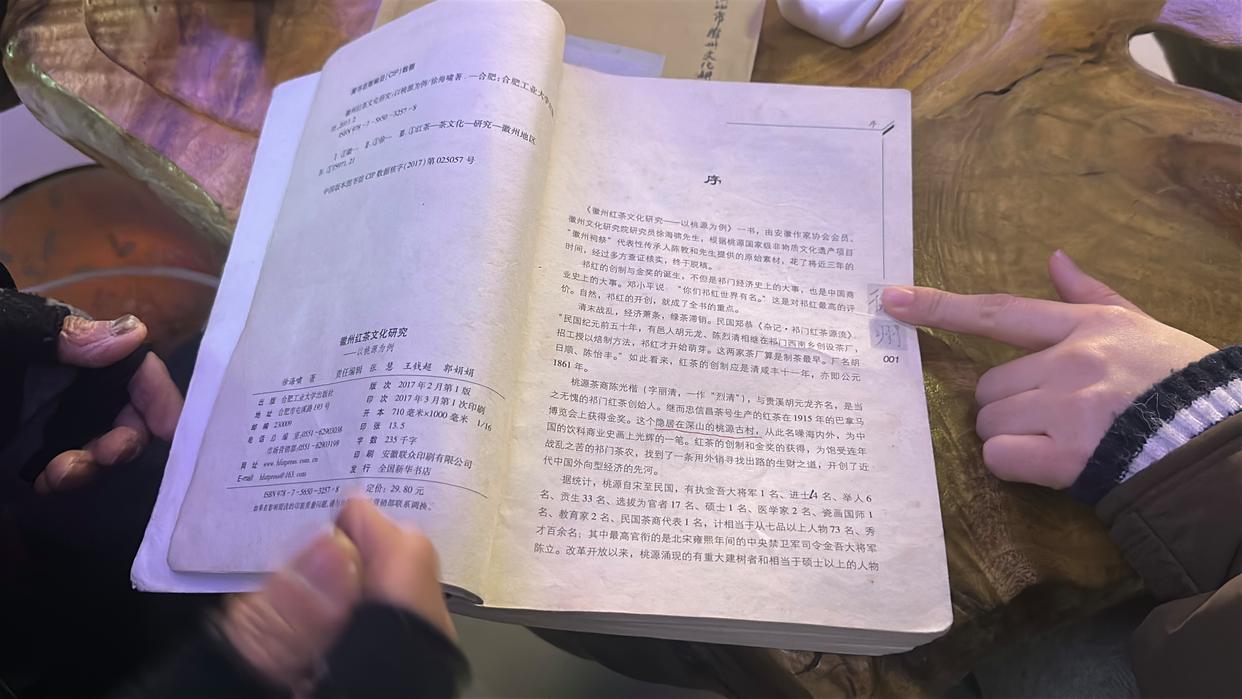 图书在版编目(CIP)数据
徽州红茶文化研究:以桃源为例/徐海啸著.—合肥:合肥工业大学
2017.2
ISBN 978-7-5650-3257-8
Ⅰ.①徽… Ⅱ.①徐… Ⅲ.①红茶—茶文化—研究—徽州地区
Ⅳ.①TS971.21
中国版本图书馆CIP数据核字(2017)第025057号
徽州红茶文化研究
——以桃源为例
徐海啸 著
责任编辑 张 慧 王钱超 郭娟娟
出 版 合肥工业大学出版社
地 址 合肥市屯溪路193号
邮 编 230009
电 话 总 编 室:0551-62903038
市场营销部:0551-62903198
网 址 www.hfutpress.com.cn
E-mail hfutpress@163.com
版 次 2017年2月第1版
印 次 2017年3月第1次印刷
开 本 710毫米×1000毫米 1/16
印 张 13.5
字 数 235千字
印 刷 安徽联众印刷有限公司
发 行 全国新华书店
ISBN 978-7-5650-3257-8
定价:29.80元
如果有影响阅读的印装质量问题,请与出版社市场营销部联系调换。
序
序
《徽州红茶文化研究——以桃源为例》一书,由安徽作家协会会员、
徽州文化研究院研究员徐海啸先生,根据桃源国家级非物质文化遗产项目
“徽州祠祭”代表性传承人陈敦和先生提供的原始素材,花了将近三年的
时间,经过多方查证核实,终于脱稿。
祁红的创制与金奖的诞生,不但是祁门经济史上的大事,也是中国商
业史上的大事。邓小平说:“你们祁红世界有名。”这是对祁红最高的评
价。自然,祁红的开创,就成了全书的重点。
清末战乱,经济萧条,绿茶滞销。民国郑恭《杂记·祁门红茶源流》:
“民国纪元前五十年,有邑人胡元龙、陈烈清相继在祁门西南乡创设茶厂,
招工授以焙制方法,祁红才开始萌芽。这两家茶厂算是制茶最早。厂名胡
日顺、陈怡丰。”如此看来,红茶的创制应是清咸丰十一年,亦即公元
1861年。
桃源茶商陈光楷(字丽清,一作“烈清”),与贵溪胡元龙齐名,是当
之无愧的祁门红茶创始人。继而忠信昌茶号生产的红茶在1915年的巴拿马
博览会上获得金奖。这个隐居在深山的桃源古村,从此名噪海内外,为中
国的饮料商业史画上光辉的一笔。红茶的创制和金奖的获得,为饱受连年
战乱之苦的祁门茶农,找到了一条用外销寻找出路的生财之道,开创了近
代中国外向型经济的先河。
据统计,桃源自宋至民国,有执金吾大将军1名、进士4名、举人6
名、贡生33名、选拔为官者17名、硕士1名、医学家2名、瓷画国师1
名、教育家2名、民国茶商代表1名,计相当于从七品以上人物73名、秀
才百余名;其中最高官衔的是北宋雍熙年间的中央禁卫军司令金吾大将军
陈立。改革开放以来,桃源涌现的有重大建树者和相当于硕士以上的人物
州
001